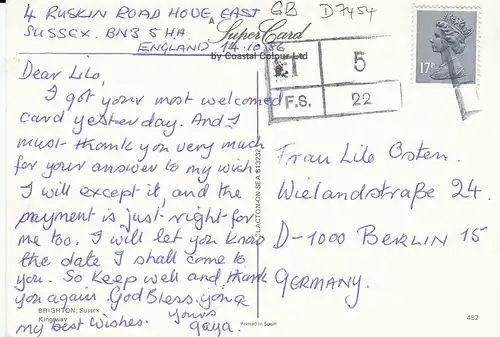 4 RUSKIN ROAD HOVE EAST GB D7454
SUSSEX. BN3 5HA.
ENGLAND 14.10.86
A
SuperCard
by Coastal Colour Ltd
Dear Lilo,
I got your most welcomed
card yesterday. And I
must thank you very much
for your answer to my wish.
I will except it, and the
payment is just right for
me too. I will let you know
the date I shall come to
you. So keep well and thank
you again. God Bless. you &
my best wishes. Yours
Gaya.
BRIGHTON, Sussex
Kingsway
CLACTON-ON-SEA 813232
Printed in Spain
5
F.S. 22
17P
Frau Lilo Osten.
Wielandstraße 24.
D-1000 BERLIN 15
GERMANY.
482